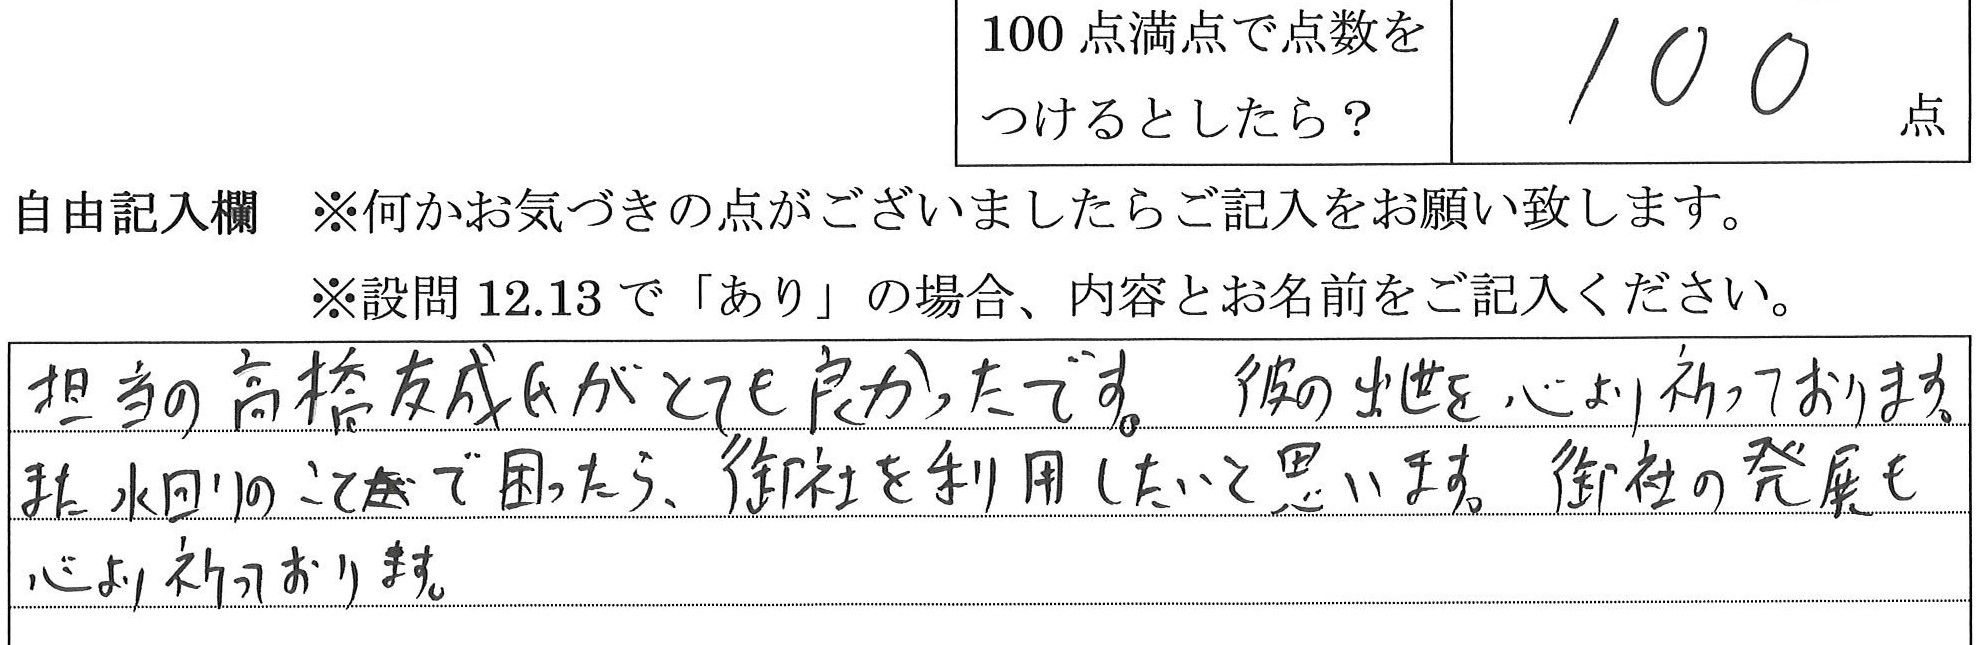 100点満点で点数を
つけるとしたら？
100 点
自由記入欄 ※何かお気づきの点がございましたらご記入をお願い致します。
※設問12.13で「あり」の場合、内容とお名前をご記入ください。
担当の高橋友成氏がとても良かったです。彼の出世を心より祈っております。
また水回りのことで困ったら、御社を利用したいと思います。御社の発展も
心より祈っております。